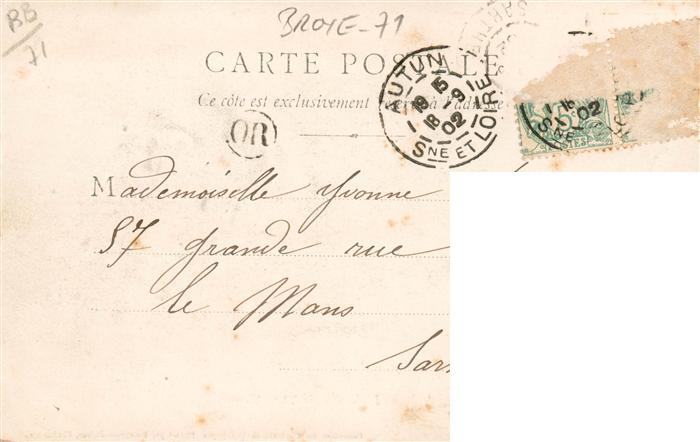 BB
71
BROYE-71
CARTE POSTALE
Ce côte est exclusivement réservé à l'adresse
AUTUN
19 15
18 -9
02
SNE ET LOIRE
OR
02
5
POSTES
Mademoiselle Yvonne
57 grande rue
le Mans
Sar